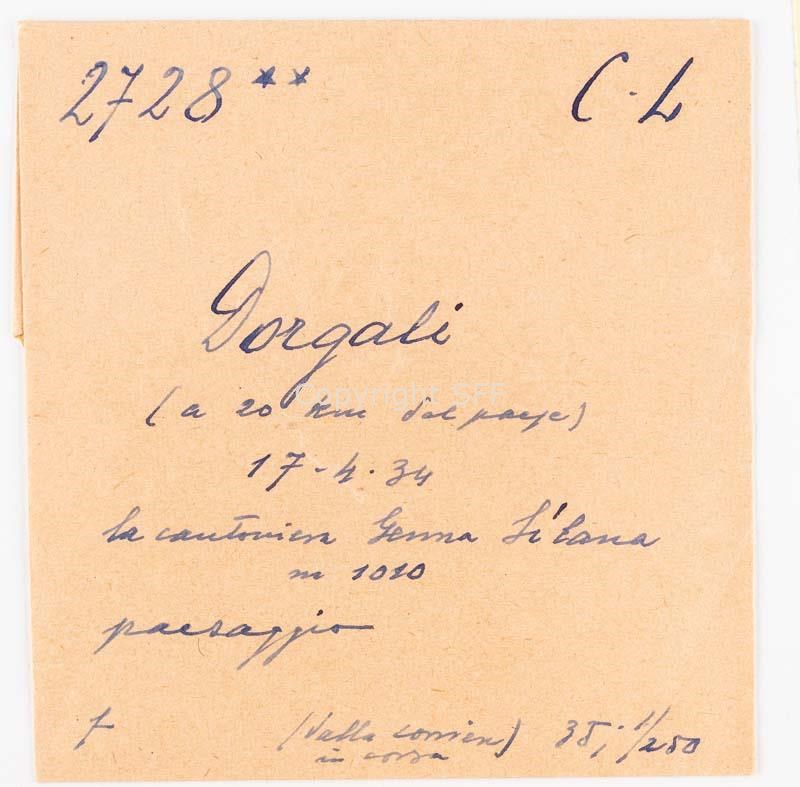 2728** C·L
Dorgali
Copyright SFF
(a 20 km dal paese)
17-4-34
la cantoniera Genna Sílana
m 1010
paesaggio
f (dalla corriera) 35; 1/250
in corsa